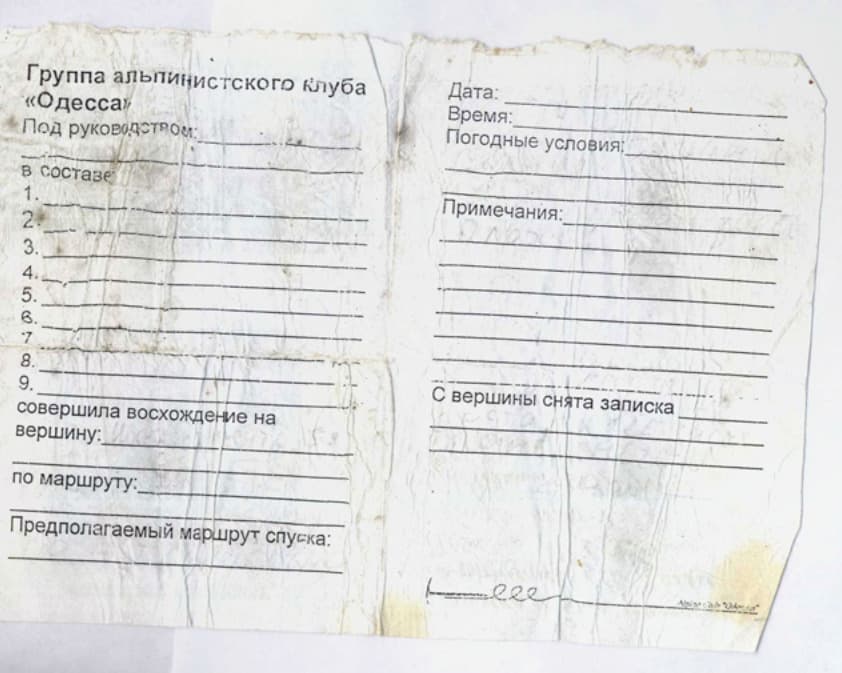 Группа альпинистского клуба
«Одесса»
Под руководством:
в составе
1.
2.
3.
4.
5.
6.
7
8.
9.
совершила восхождение на
вершину:
по маршруту:
Предполагаемый маршрут спуска:
Дата:
Время:
Погодные условия:
Примечания:
С вершины снята записка